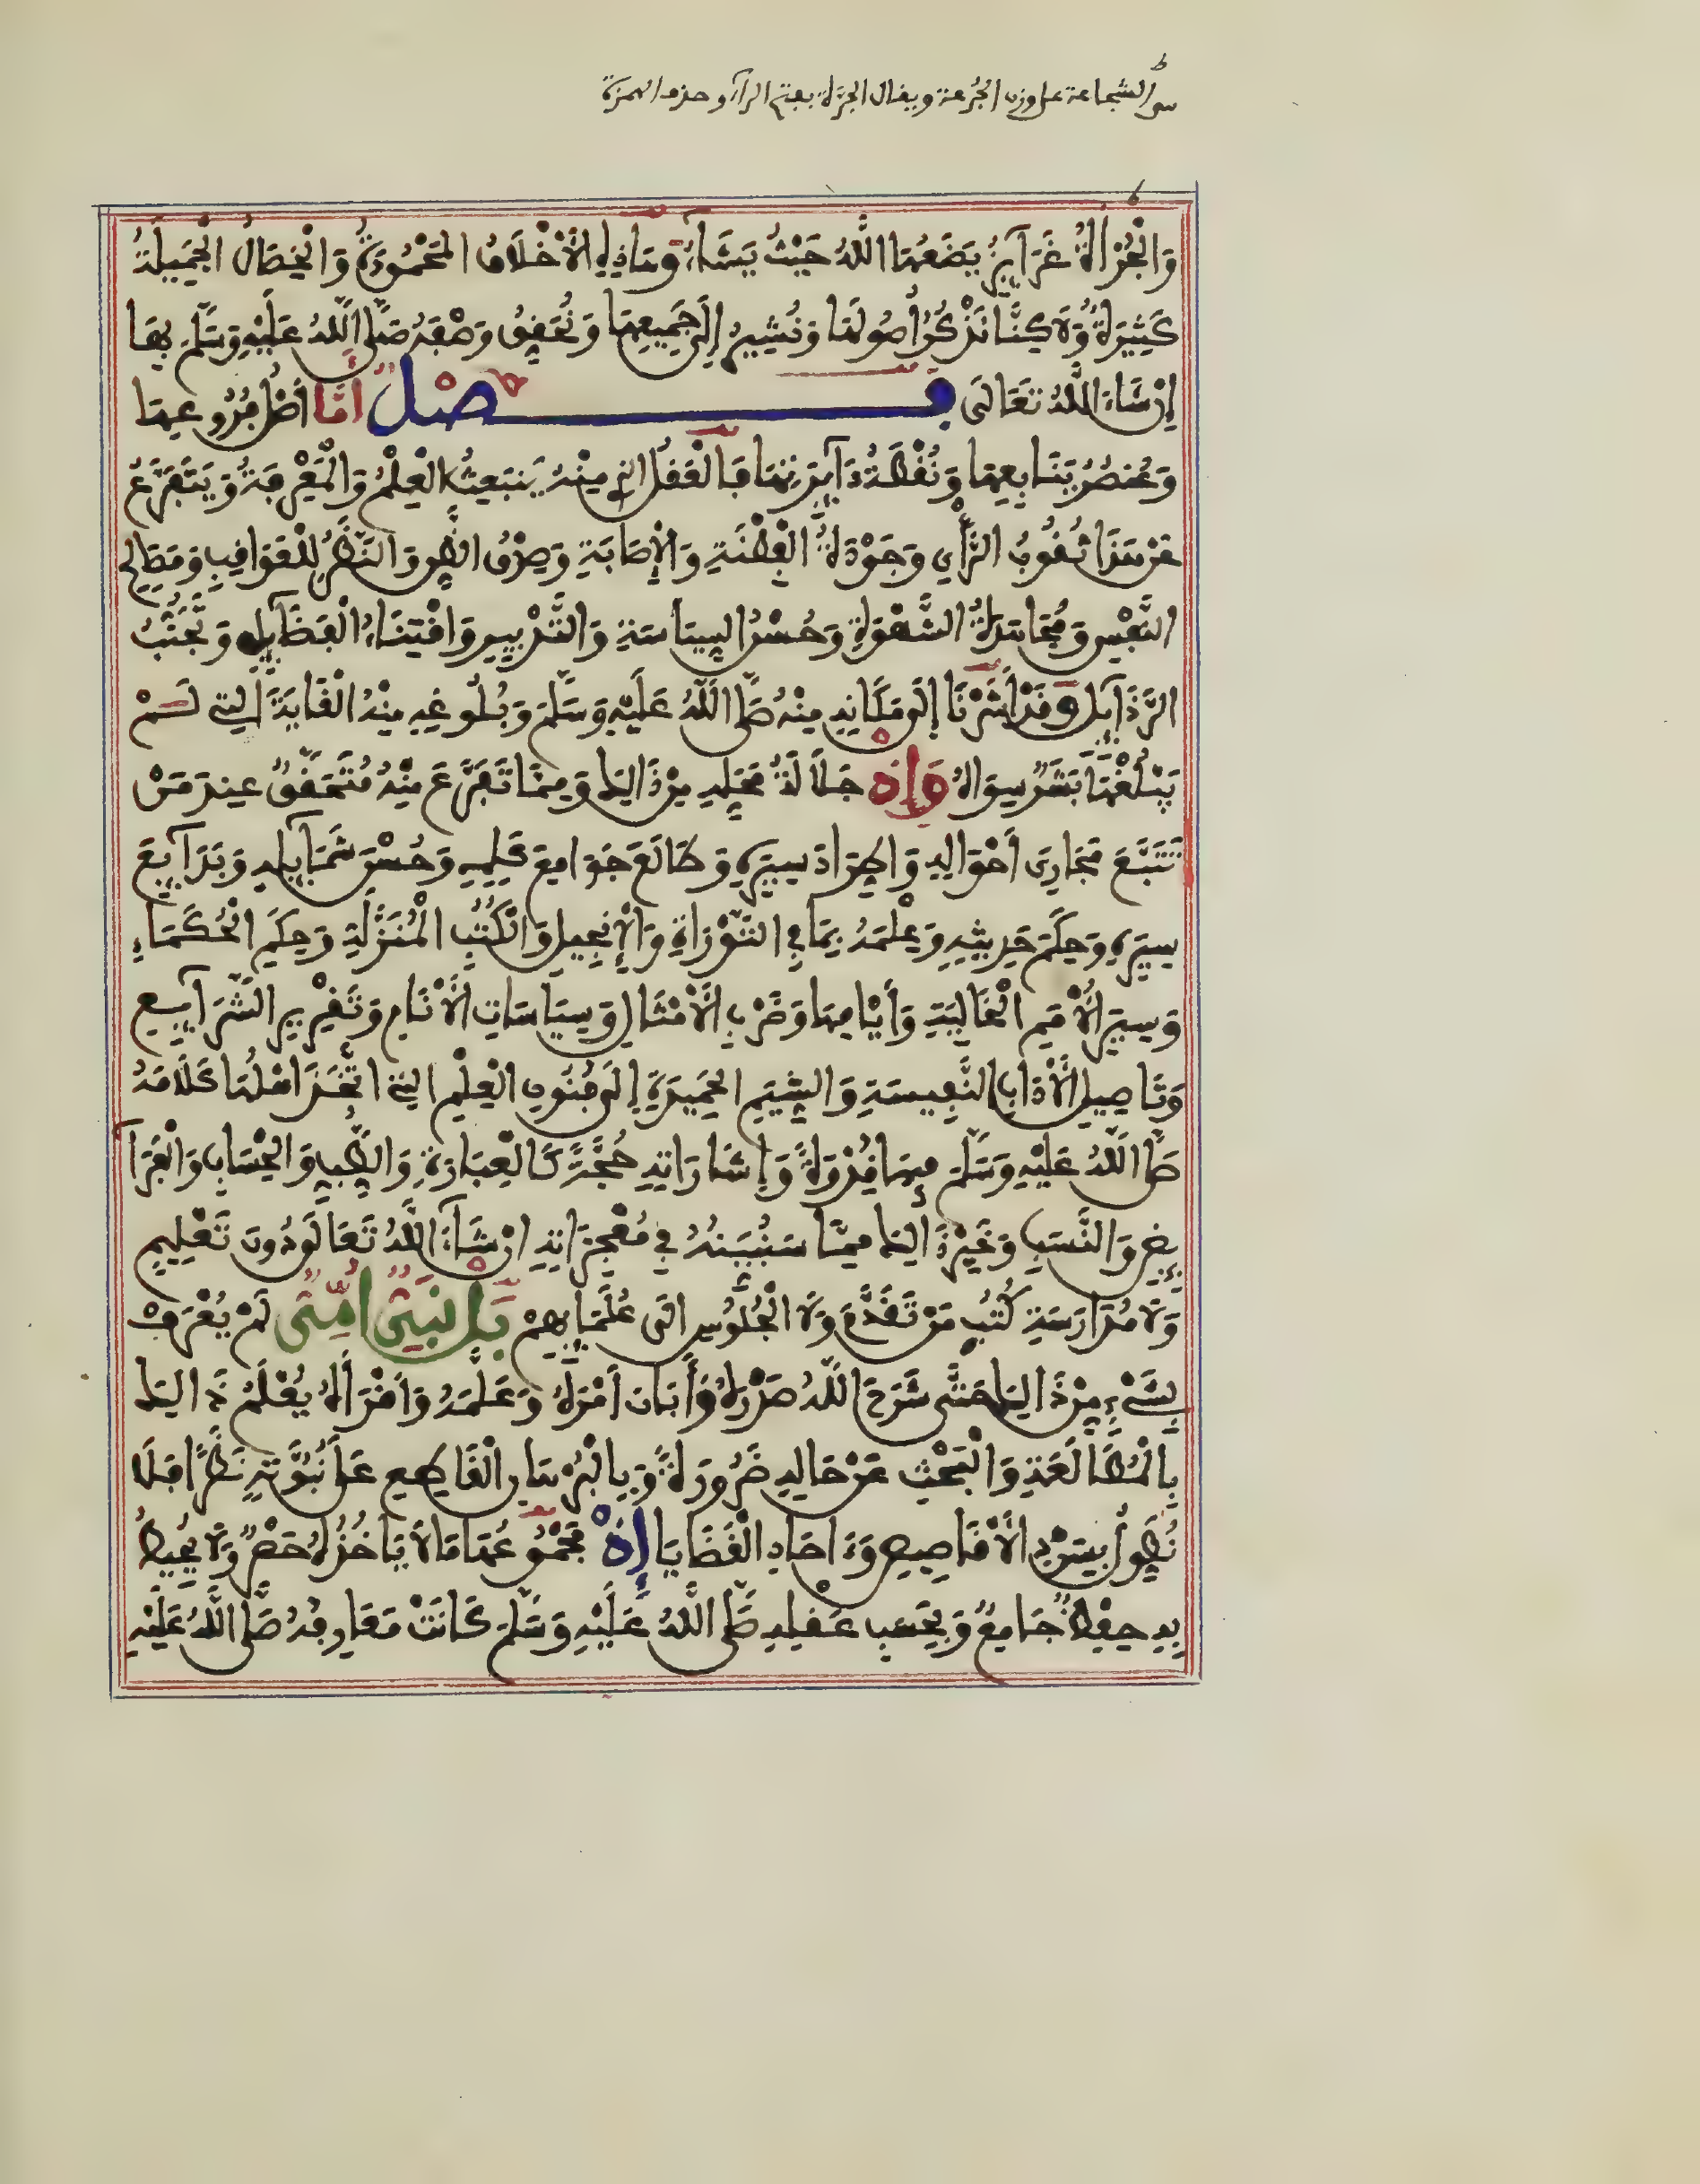 ط
هو الشجاعة على وزن الجُرعة ويقال الجرة بفتح الراء وحذف الهمزة
وَالْجُرْأَةُ غَرَائِزُ يَضَعُهَا اللَّهُ حَيْثُ يَشَاءُ وَهَذِهِ الْأَخْلَاقُ الْمَحْمُودَةُ وَالْخِصَالُ الْجَمِيلَةُ
كَثِيرَةٌ وَلَكِنَّا نَذْكُرُ أُصُولَهَا وَنُشِيرُ إِلَى جَمِيعِهَا وَنُحَقِّقُ وَصْفَهُ صَلَّى اللَّهُ عَلَيْهِ وَسَلَّمَ بِهَا
إِنْ شَاءَ اللَّهُ تَعَالَى فصل أَمَّا أَصْلُ فُرُوعِهَا
وَعُنْصُرُ يَنَابِعِهَا وَنُقْطَةُ دَائِرَتِهَا فَالْعَقْلُ الذي مِنْهُ يَنْبَعِثُ الْعِلْمُ وَالْمَعْرِفَةُ وَيَتَفَرَّعُ
عَنْ هَذَا ثُقُوبُ الرَّأْيِ وَجَوْدَةُ الْفِطْنَةِ وَالْإِصَابَةِ وَصِدْقُ الظَّنِّ وَالنَّظَرُ لِلْعَوَاقِبِ وَمَصَالِحِ
النَّفْسِ وَمُجَاهَدَةُ الشَّهْوَةِ وَحُسْنُ السِّيَاسَةِ وَالتَّدْبِيرِ وَاقْتِنَاءُ الْفَضَائِلِ وَتَجَنُّبُ
الرَّذَائِلِ وَقَدْ أَشَرْنَا إِلَى مَكَانِهِ مِنْهُ صَلَّى اللَّهُ عَلَيْهِ وَسَلَّمَ وَبُلُوغِهِ مِنْهُ الْغَايَةَ الَّتِي لَمْ
يَبْلُغْهَا بَشَرٌ سِوَاهُ وَإِذْ جَلَالَةُ مَحَلِّهِ مِنْ ذَالِكَ وَمِمَّا تَفَرَّعَ مِنْهُ مُتَحَقِّقٌ عِنْدَ مَنْ
تَتَبَّعَ مَجَارِيَ أَحْوَالِهِ وَاطِّرَادَ سِيَرِهِ وَطَالَعَ جَوَامِعَ كَلِمِهِ وَحُسْنَ شَمَائِلِهِ وَبَدَائِعَ
سِيَرِهِ وَحِكَمَ حَدِيثِهِ وَعِلْمَهُ بِمَا فِي التَّوْرَاةِ وَالْإِنْجِيلِ وَالْكُتُبِ الْمُنَزَّلَةِ وَحِكَمِ الْحُكَمَاءِ
وَسِيَرِ الْأُمَمِ الْخَالِيَةِ وَأَيَّامِهَا وَضَرْبِ الْأَمْثَالِ وَسِيَاسَاتِ الْأَنَامِ وَتَقْرِيرِ الشَّرَائِعِ
وَتَاصِيلِ الْآدَابِ النَّفِيسَةِ وَالشِّيَمِ الْحَمِيدَةِ إِلَى فُنُونِ الْعِلْمِ الَّتِي اتَّخَذَ أَهْلُهَا كَلَامَهُ
صَلَّى اللَّهُ عَلَيْهِ وَسَلَّمَ فِيهَا قُدْوَةً وَإِشَارَاتِهِ حُجَّةً كَالْعِبَارَةِ وَالطِّبِّ وَالْحِسَابِ وَالْفَرَا
ئِضِ وَالنَّسَبِ وَغَيْرِ ذَالِكَ مِمَّا سَنُبَيِّنُهُ فِي مُعْجِزَاتِهِ إِنْ شَاءَ اللَّهُ تَعَالَى دُونَ تَعْلِيمٍ
وَلَا مُدَارَسَةِ كُتُبِ مَنْ تَقَدَّمَ وَلَا الْجُلُوسِ الَى عُلَمَائِهِمْ بَلْ نَبِيٌّ أُمِّيٌّ لَمْ يُعْرَفْ
بِشَيْءٍ مِنْ ذَالِكَ حَتَّى شَرَحَ اللَّهُ صَدْرَهُ وَأَبَانَ أَمْرَهُ وَعَلَّمَهُ وَأَقْرَأَهُ يُعْلَمُ ذَالِكَ
بِالْمُطَالَعَةِ وَالْبَحْثِ عَنْ حَالِهِ ضَرُورَةً وَبِالْبُرْهَانِ الْقَاطِعِ عَلَى نُبُوَّتِهِ نَظَرًا فَلَا
نُطَوِّلُ بِسَرْدِ الْأَقَاصِيصِ وَءَاحَادِ الْقَضَايَا إِذْ مَجْمُوعُهَا مَا لَا يَاخُذُهُ حَصْرٌ وَلَا يُحِيطُ
بِهِ حِفْظٌ جَامِعٌ وَبِحَسَبِ عَقْلِهِ صَلَّى اللَّهُ عَلَيْهِ وَسَلَّمَ كَانَتْ مَعَارِفُهُ صَلَّى اللَّهُ عَلَيْهِ